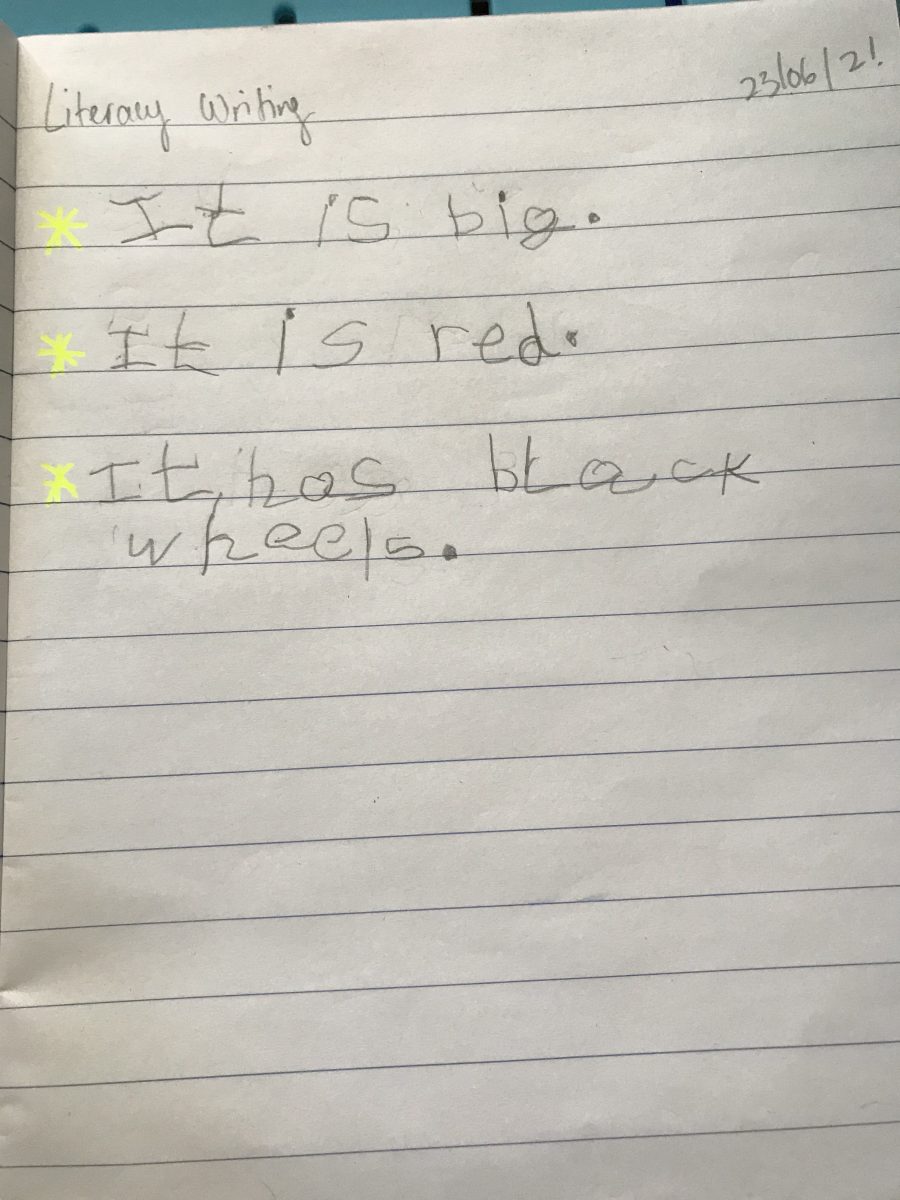 Literacy Writing 23/06/21
* It is big.
* It is red.
* It has black
wheels.